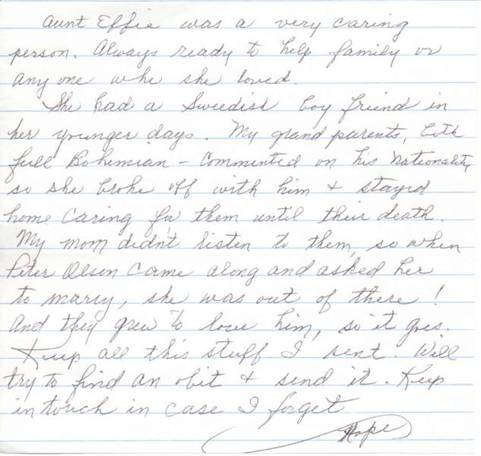 Aunt Effie was a very caring
person. Always ready to help family or
anyone whe she loved.
She had a Swedish boy friend in
her younger days. My grand parents, both
full Bohemian - Commented on his Nationality,
so she broke off with him & stayed
home caring for them until their death.
My mom didn't listen to them, so when
Peter Olson came along and asked her
to marry, she was out of there!
And they grew to love him, so it goes.
Keep all this stuff I sent. Will
try to find an obit & send it. Keep
in touch in case I forget
Hope